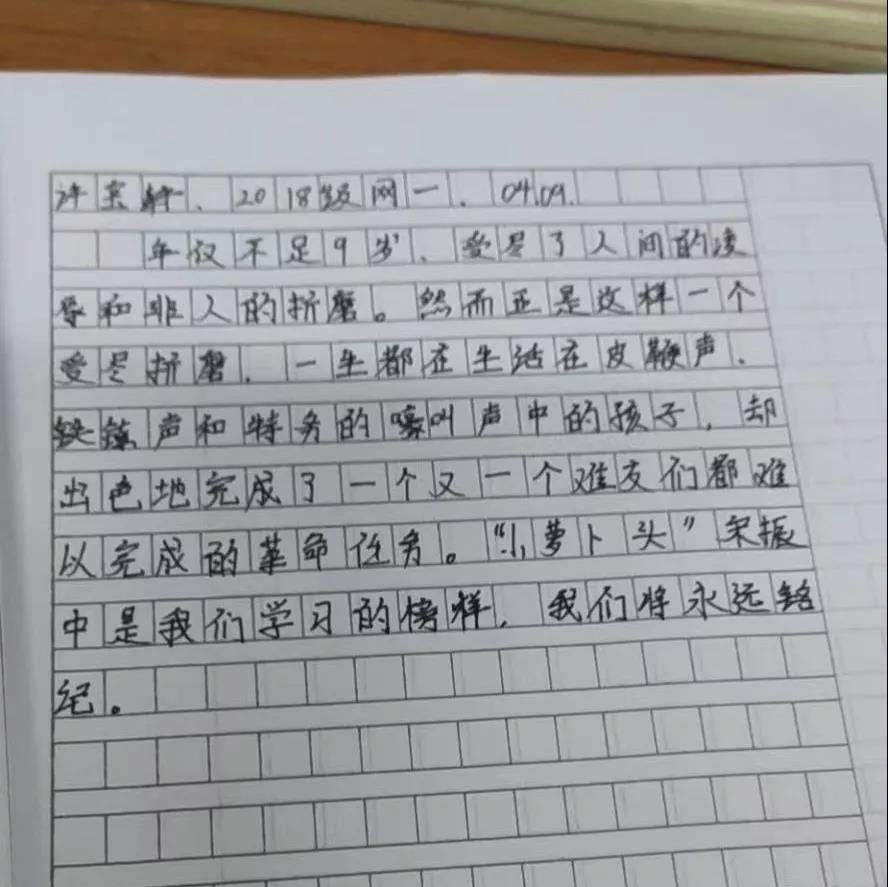 许宝轩、2018级网一.04.09.
年仅不足9岁、受尽了人间的凌
辱和非人的折磨。然而正是这样一个
受尽折磨、一生都在生活在皮鞭声、
铁镣声和特务的嚎叫声中的孩子,却
出色地完成了一个又一个难友们都难
以完成的革命任务。“小萝卜头”宋振
中是我们学习的榜样,我们将永远铭
纪。